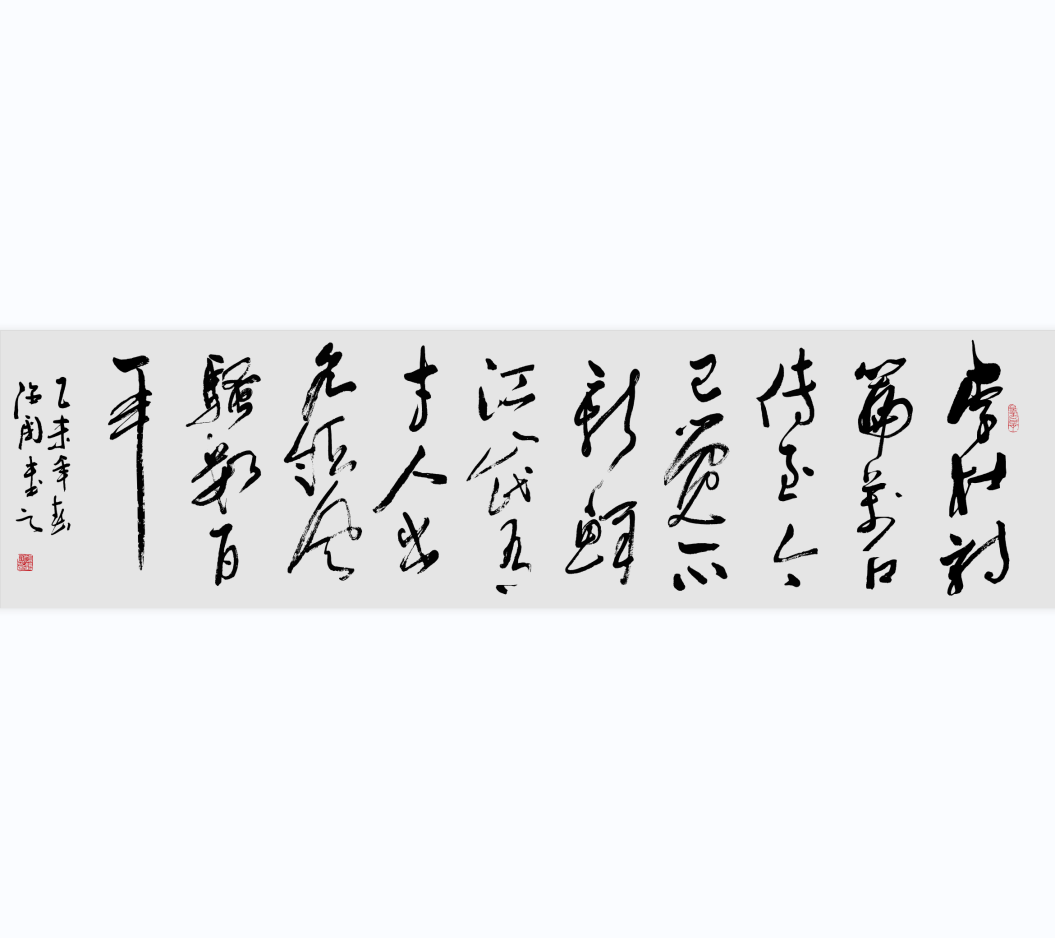 李杜詩
篇萬口
傳至今
已覺不
新鮮
江山代有
才人出
各領風
騷數百
年
乙未年春
書之